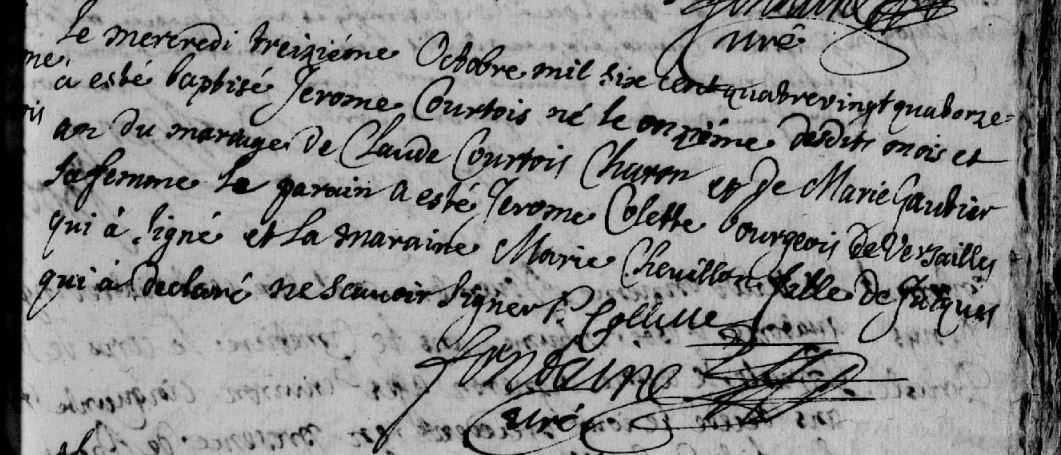 Curé
Le mercredi treiziéme Octobre mil six cent quatrevingt quatorze
à esté baptisé Jerome Courtois né le onziéme desdits mois et
an du mariage de Claude Courtois Charon et de Marie Gautier
sa femme le parain a esté Jerome Colette bourgeois de Versailles
qui à signé et la maraine Marie Chevillon fille de Jacques
qui à declaré ne scavoir signer
Fondaine
Curé